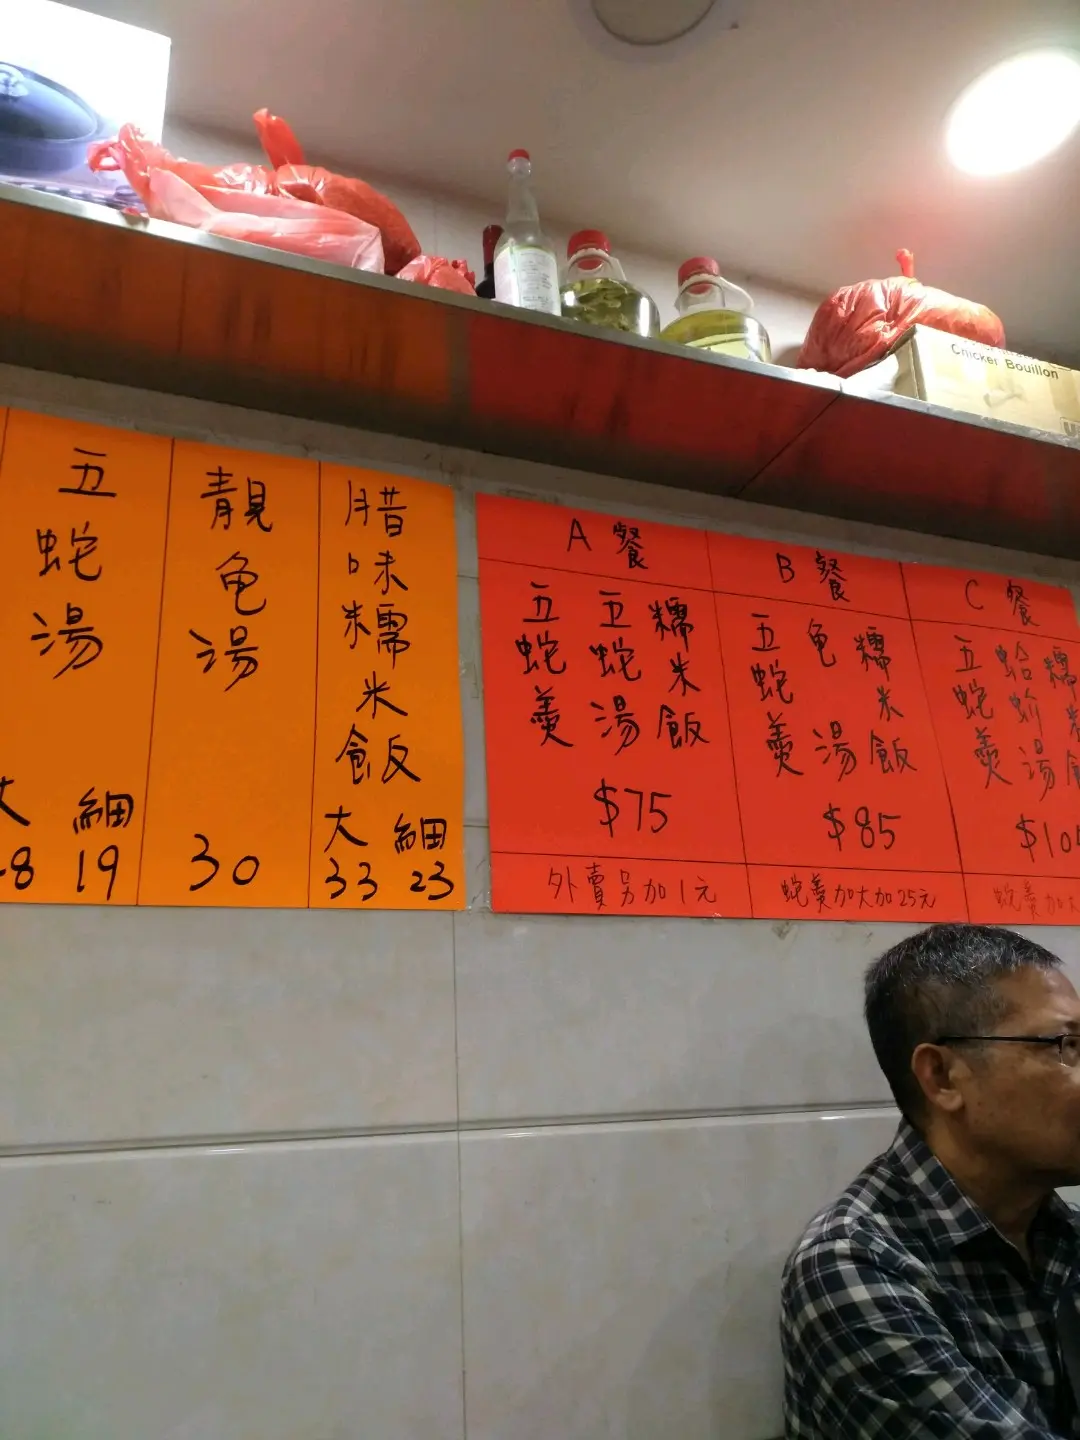 Chicken Bouillon
五蛇湯
大 細
19
靚龟湯
30
腊味糯米飯
大 細
33 23
A餐
五蛇羹
五蛇湯
糯米飯
$75
外賣另加1元
B餐
五蛇羹
龟湯
糯米飯
$85
蛇羹加大加25元
C餐
五蛇羹
蛤蚧湯
糯米飯
蛇羹加大